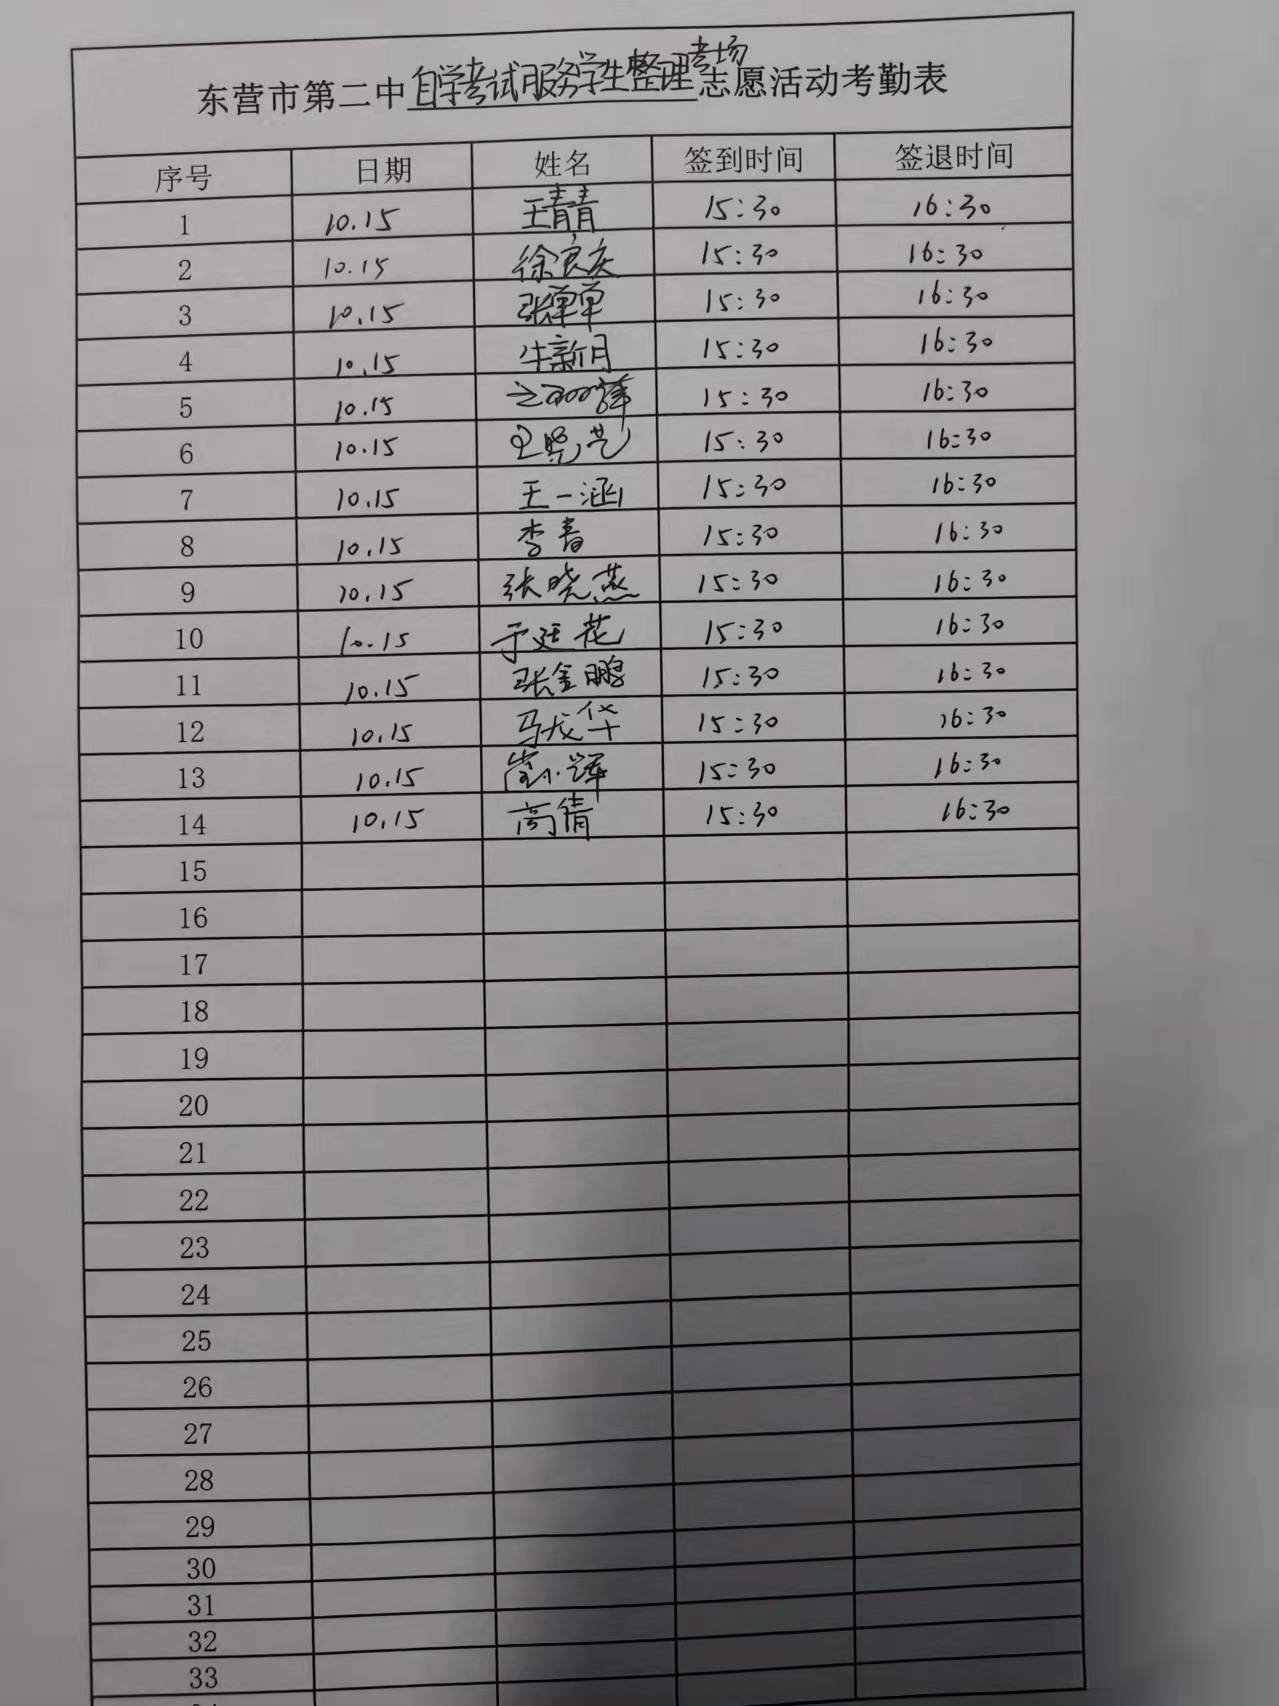 东营市第二中自学考试服务学生整理考场志愿活动考勤表
序号 日期 姓名 签到时间 签退时间
1 10.15 王青青 15:30 16:30
2 10.15 徐良庆 15:30 16:30
3 10.15 张单单 15:30 16:30
4 10.15 牛新月 15:30 16:30
5 10.15 15:30 16:30
6 10.15 15:30 16:30
7 10.15 王一涵 15:30 16:30
8 10.15 李春 15:30 16:30
9 10.15 张晓燕 15:30 16:30
10 10.15 于廷花 15:30 16:30
11 10.15 张金鹏 15:30 16:30
12 10.15 马龙华 15:30 16:30
13 10.15 15:30 16:30
14 10.15 高倩 15:30 16:30
15
16
17
18
19
20
21
22
23
24
25
26
27
28
29
30
31
32
33